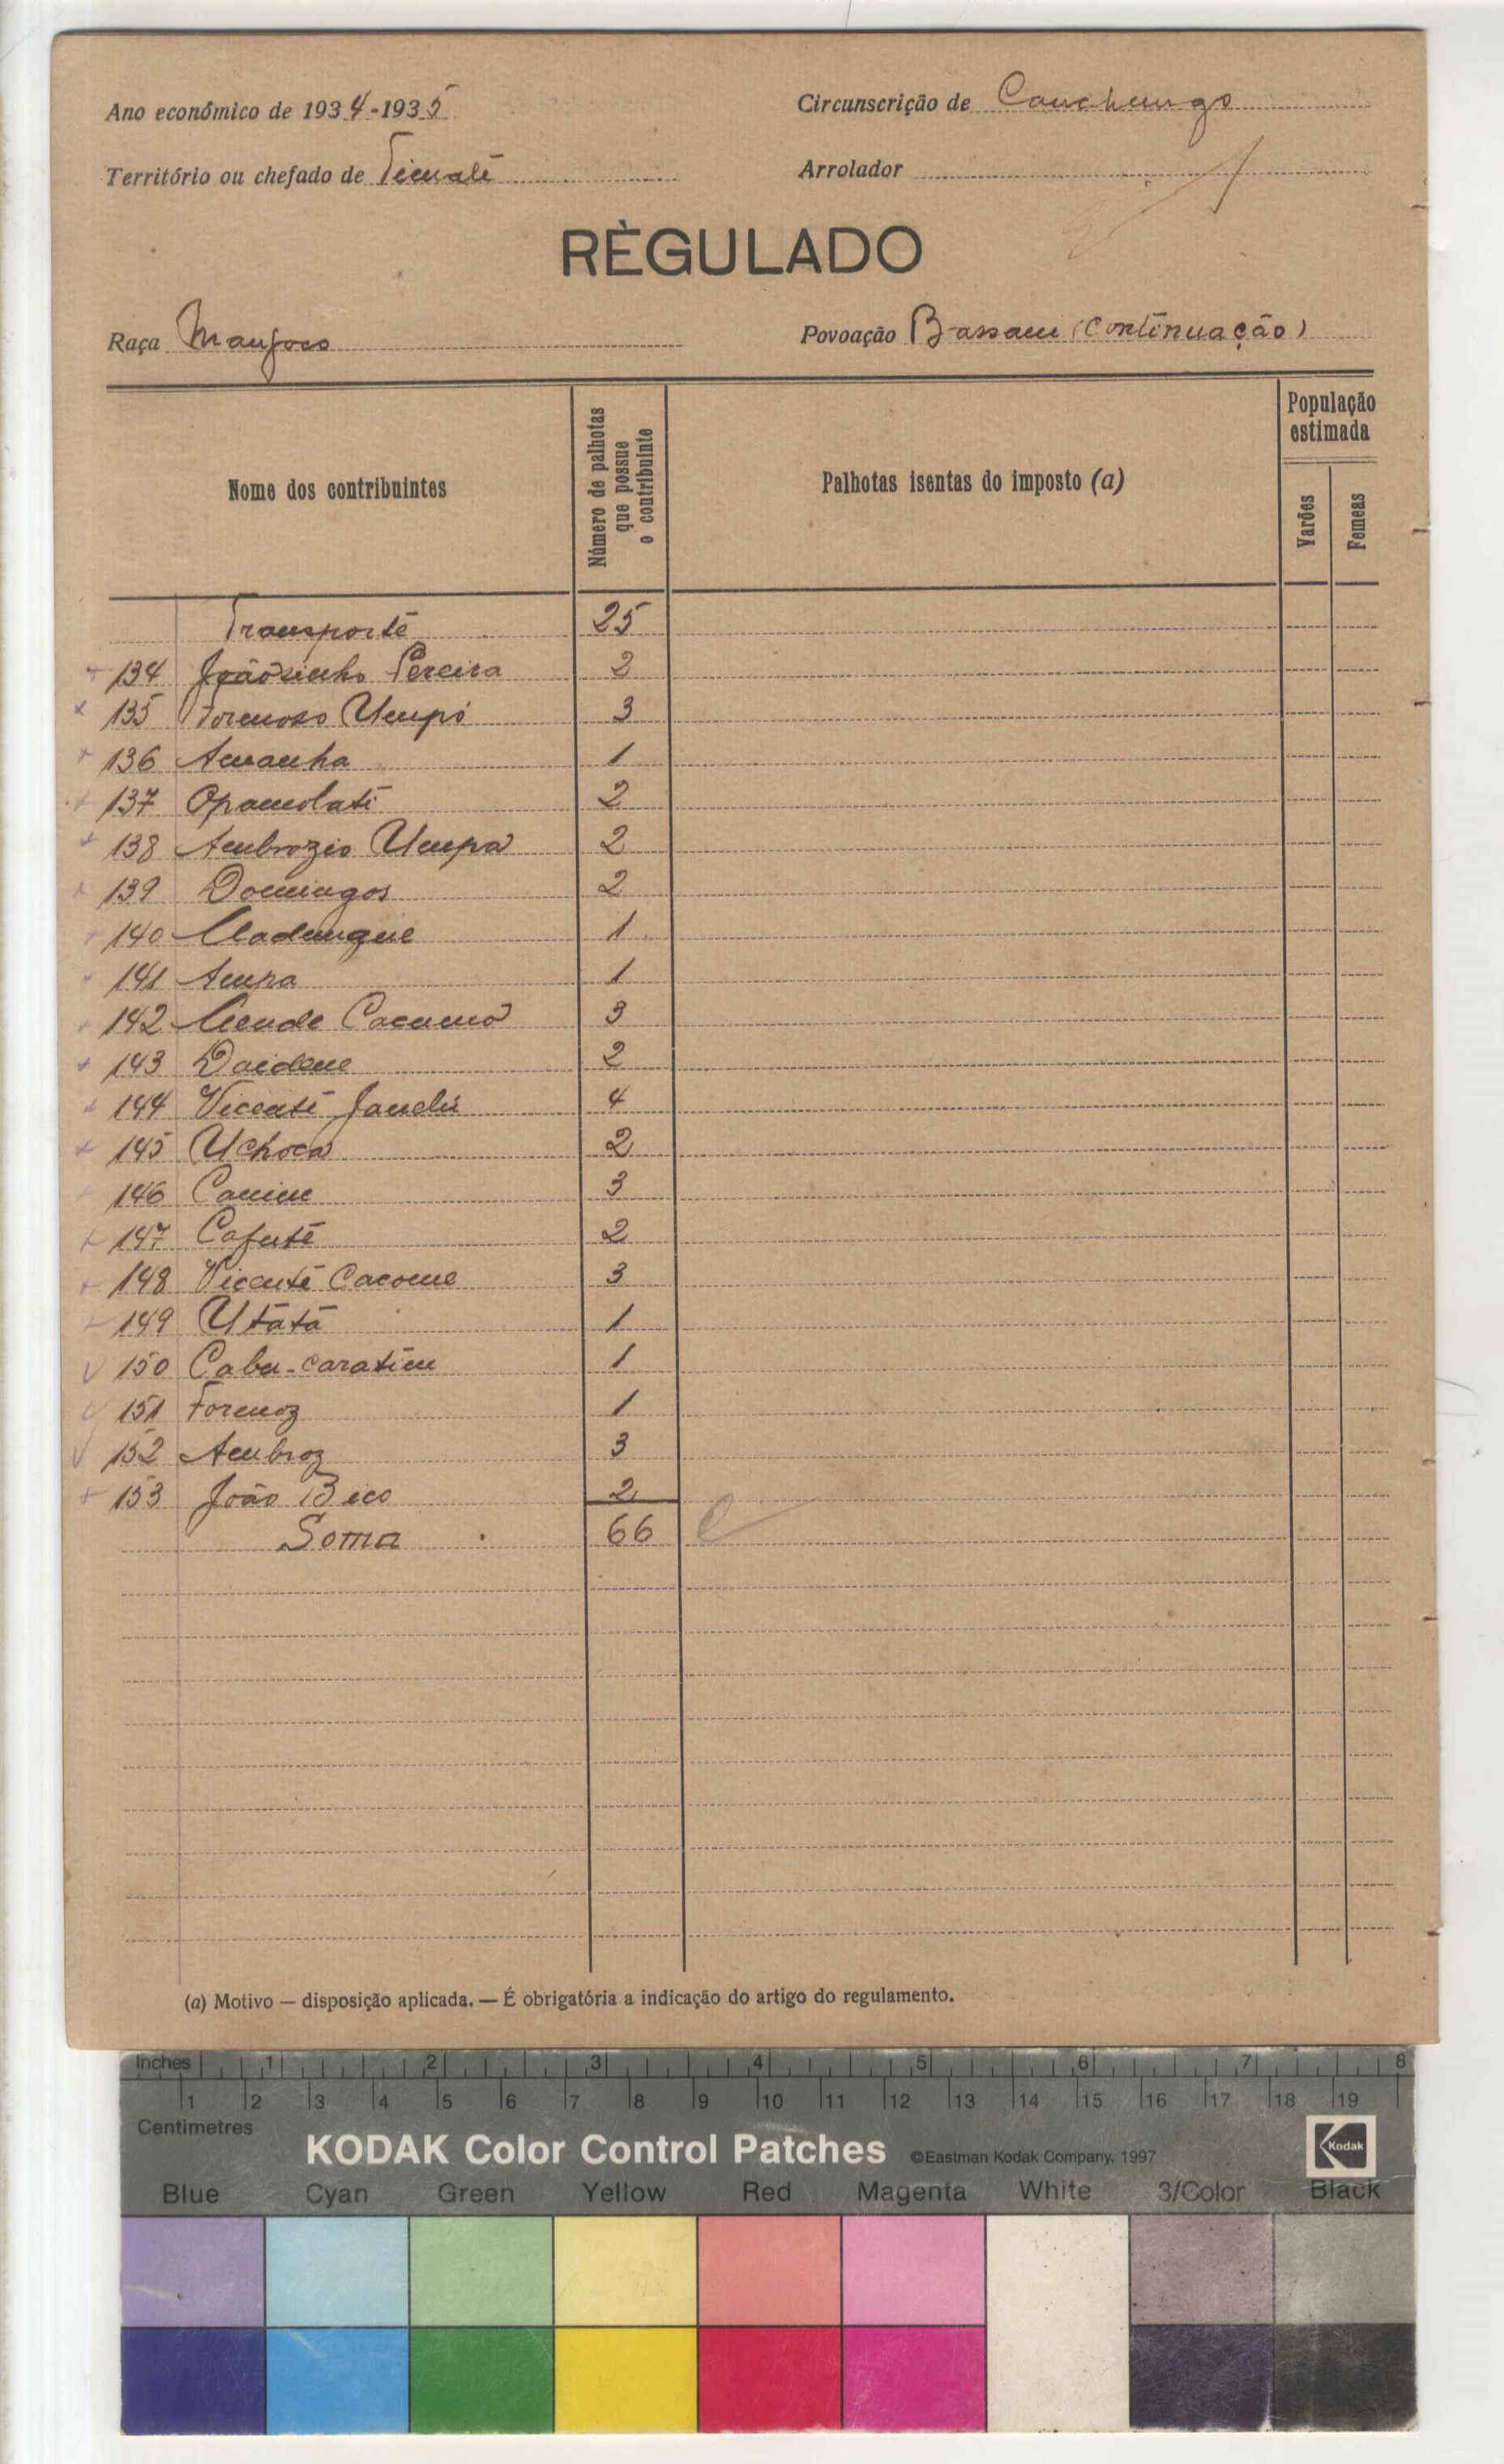 Ano económico de 1934-1935
Circunscrição de Canchungo
Território ou chefado de
Arrolador
RÈGULADO
Raça
Povoação Bassam (continuação)
Nome dos contribuintes
Número de palhotas que possue o contribuinte
Palhotas isentas do imposto (a)
População estimada
Varões
Femeas
Transporte 25
134 Joãosinho Pereira 2
135 Formoso 3
136 Amanha 1
137 2
138 Ambrozio Umpa 2
139 Domingos 2
140 1
141 Ampa 1
142 3
143 2
144 Vicente 4
145 Uchoca 2
146 3
147 Cafute 2
148 Vicente Cacome 3
149 Utátá 1
150 1
151 Formoz 1
152 Ambroz 3
153 João Bico 2
Soma 66
(a) Motivo — disposição aplicada. — É obrigatória a indicação do artigo do regulamento.
Inches 1 2 3 4 5 6 7 8
1 2 3 4 5 6 7 8 9 10 11 12 13 14 15 16 17 18 19
Centimetres
KODAK Color Control Patches ©Eastman Kodak Company, 1997 Kodak
Blue Cyan Green Yellow Red Magenta White 3/Color Black